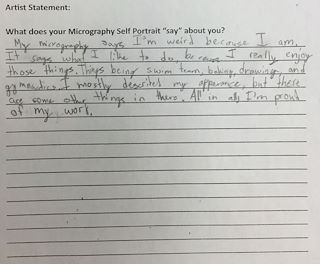 Artist Statement:
What does your Micrography Self Portrait "say" about you?
My micrography says I'm weird because I am.
It says what I like to do, because I really enjoy
those things. Things being swim team, baking, drawing, and
gymnastics. I mostly described my apperance, but there
are some other things in there. All in all, I'm proud
of my work.